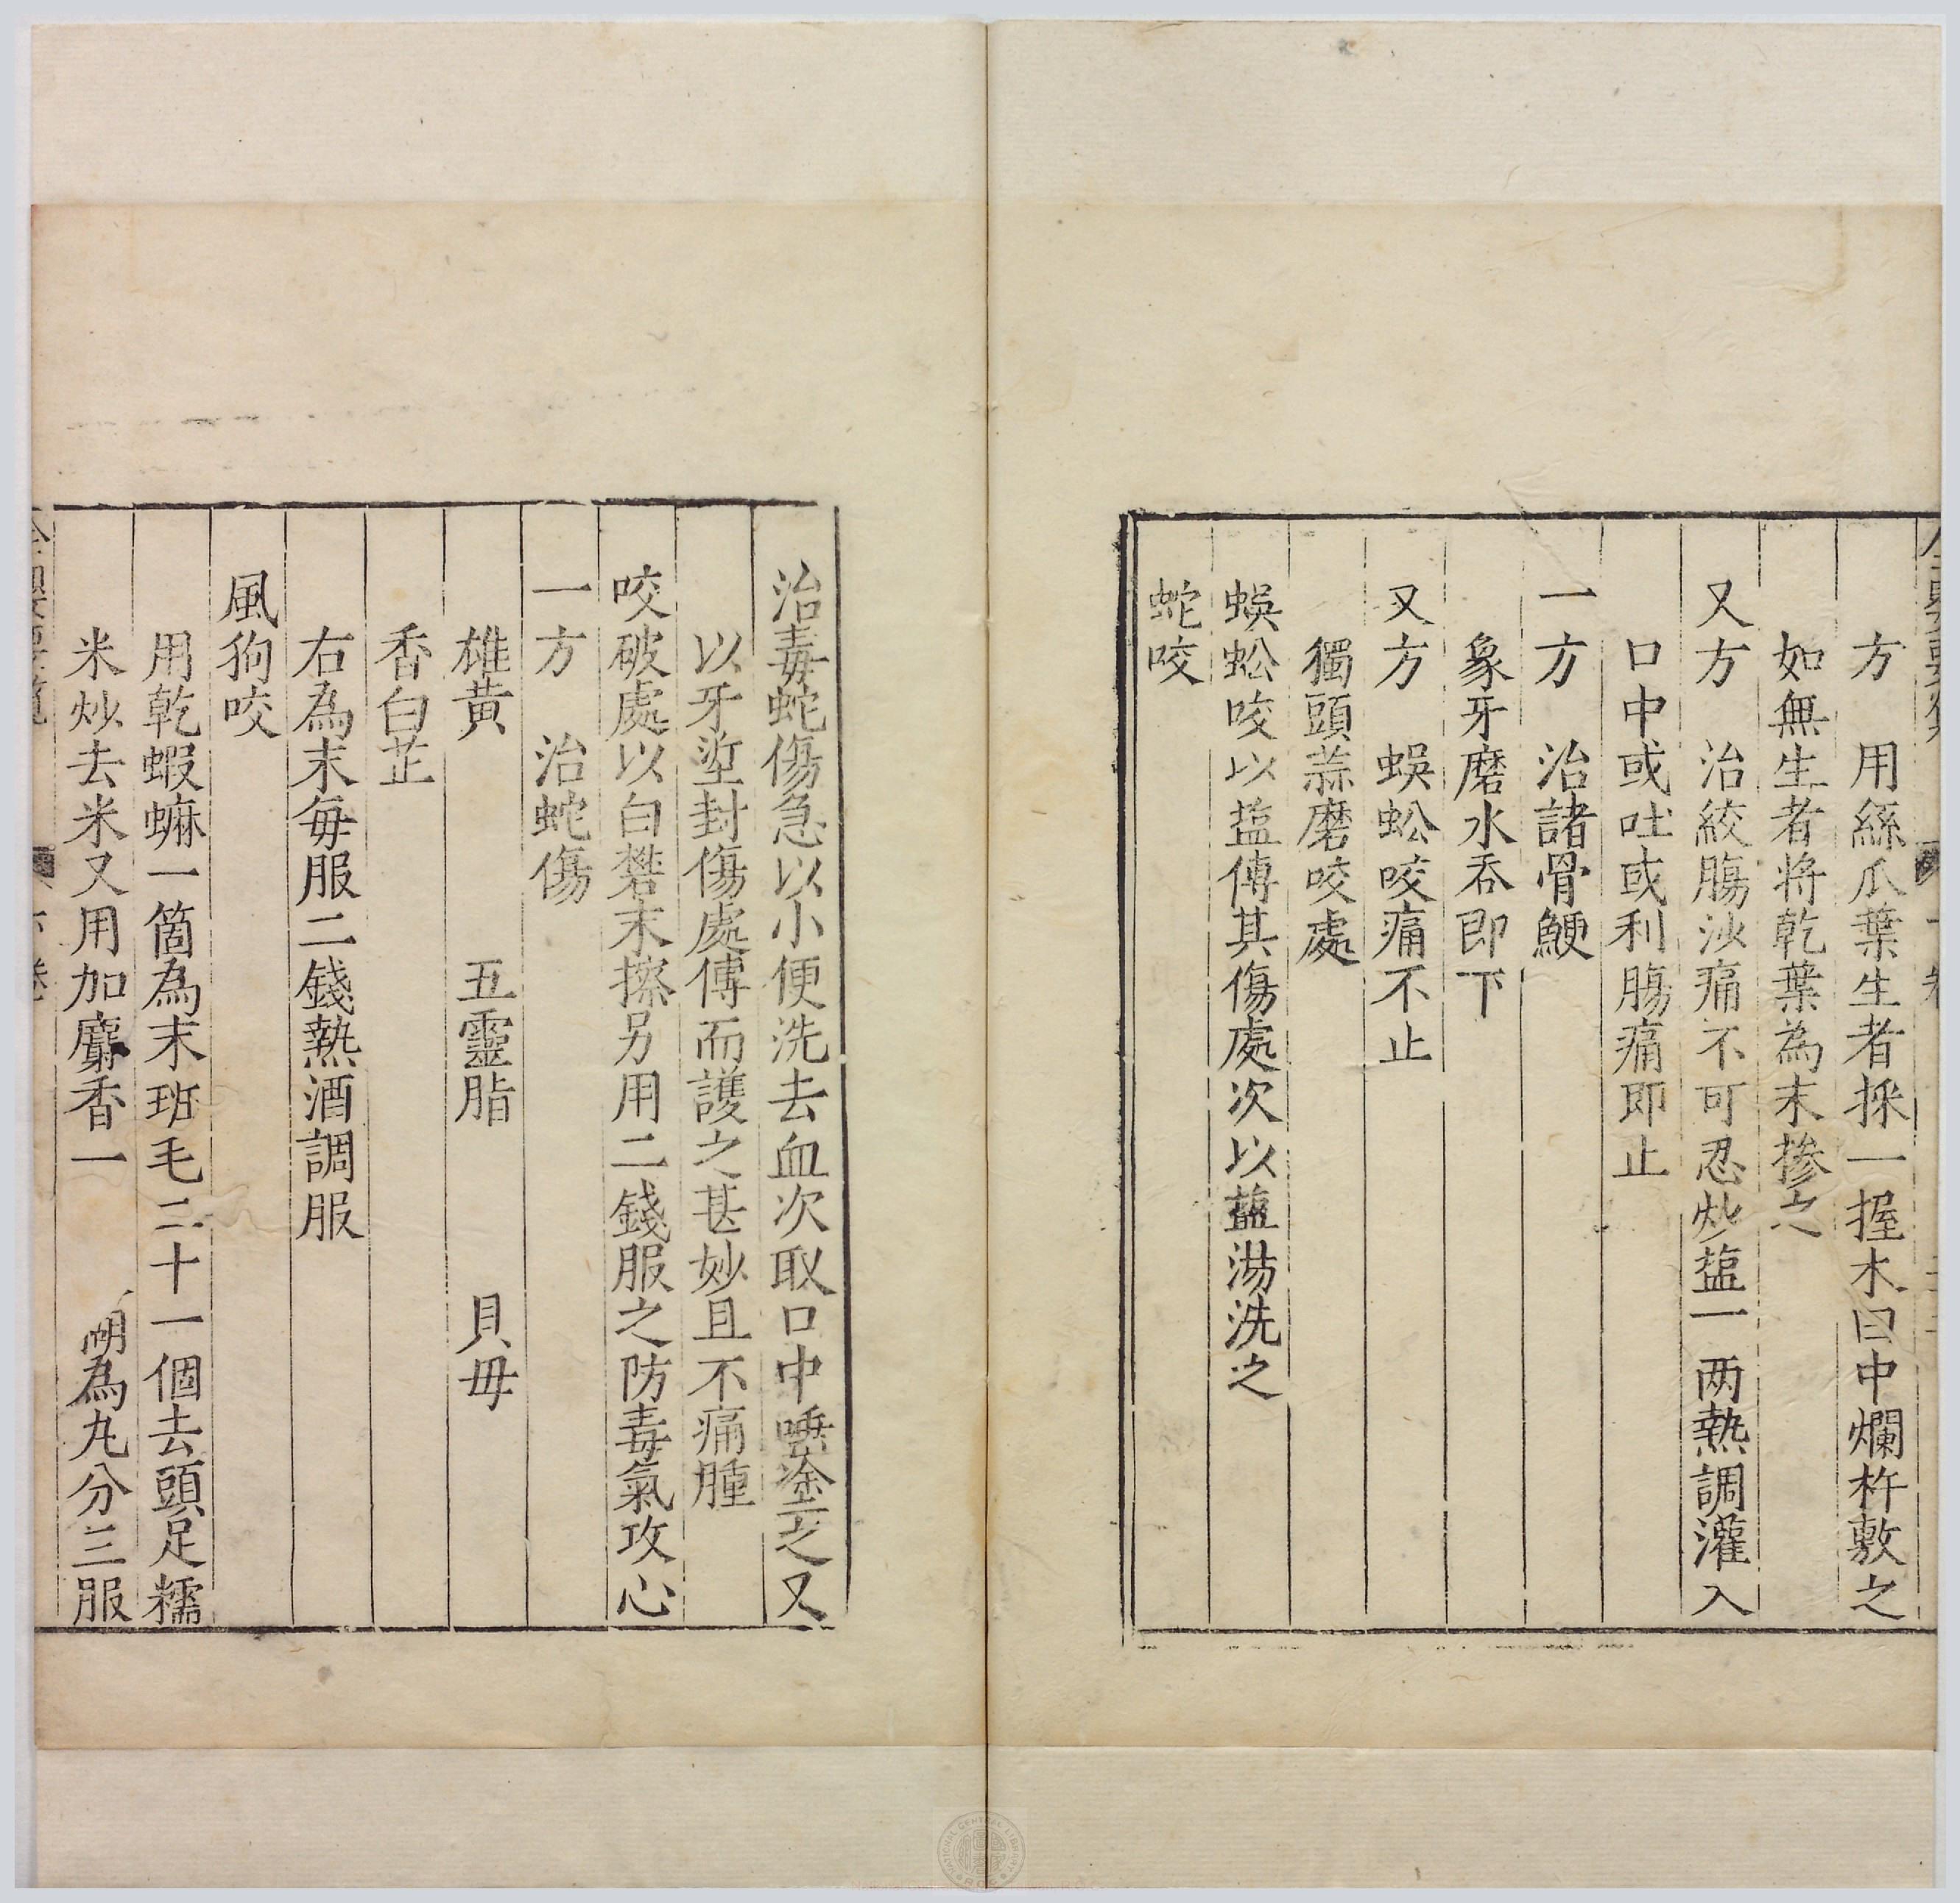 方　用絲瓜葉生者採一握木臼中爛杵敷之
如無生者将乾葉為末摻之
又方　治絞膓沙痛不可忍炒塩一两熱調灌入
口中或吐或利膓痛即止
一方　治諸骨鯁
象牙磨水吞即下
又方　蜈蚣咬痛不止
獨頭蒜磨咬處
蜈蚣咬以塩傅其傷處次以塩湯洗之
蛇咬
治毒蛇傷急以小便洗去血次取口中唾塗之又
以牙垽封傷處傅而護之甚妙且不痛腫
咬破處以白礬末擦另用二錢服之防毒氣攻心
一方　治蛇傷
雄黃　五靈脂　貝毋
香白芷
右為末每服二錢熱酒調服
風狗咬
用乾蝦蟆一箇為末班毛二十一個去頭足糯
米炒去米又用加麝香一　為丸分三服